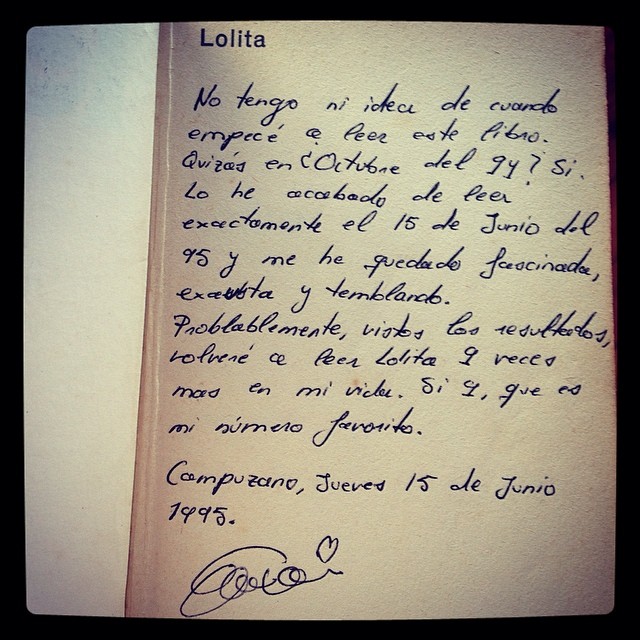 Lolita
No tengo ni idea de cuando
empecé a leer este libro.
Quizás en ¿Octubre del 94? Si.
Lo he acabado de leer
exactamente el 15 de Junio del
95 y me he quedado fascinada,
exausta y temblando.
Problablemente, vistos los resultados,
volveré a leer Lolita 9 veces
mas en mi vida. Si 9, que es
mi número favorito.
Campuzano, Jueves 15 de Junio
1995.